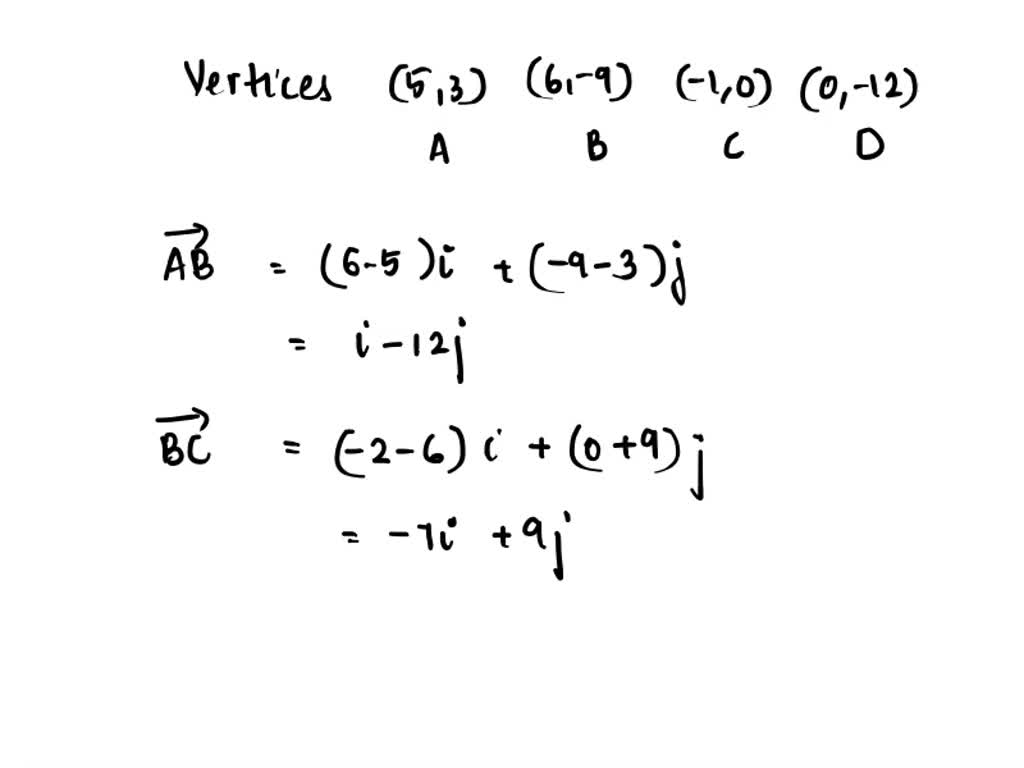 Vertices (5,3) (6,-9) (-1,0) (0,-12)
A B C D
AB = (6-5)i + (-9-3)j
= i-12j
BC = (-2-6)i + (0+9)j
= -7i +9j